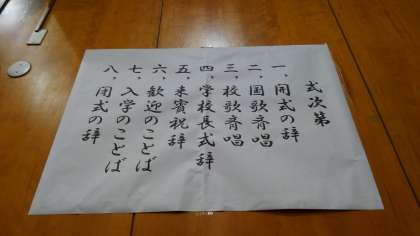 式次第
一、開式の辞
二、国歌斉唱
三、校歌斉唱
四、学校長式辞
五、来賓祝辞
六、歓迎のことば
七、入学のことば
八、閉式の辞